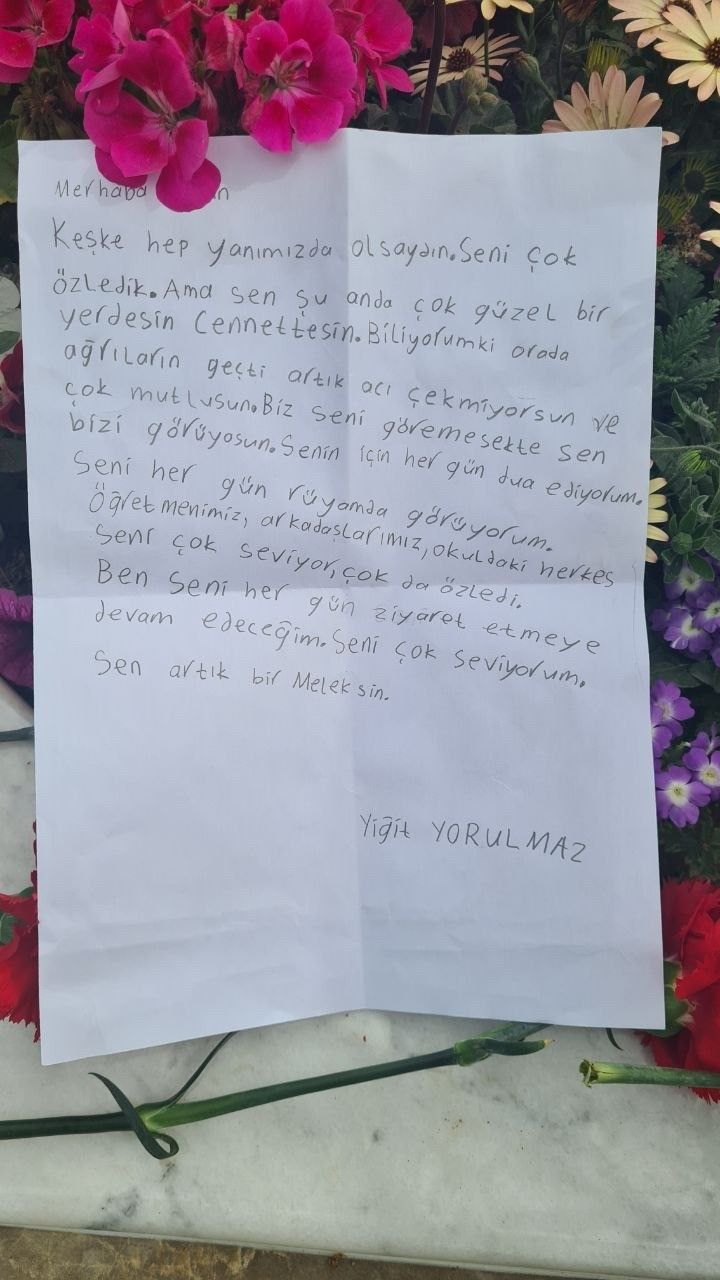 Merhaba
Keşke hep yanımızda olsaydın.Seni çok
özledik.Ama sen şu anda çok güzel bir
yerdesin Cennettesin.Biliyorumki orada
ağrıların geçti artık acı çekmiyorsun ve
çok mutlusun.Biz seni göremesekte sen
bizi görüyosun.Senin için her gün dua ediyorum.
Seni her gün rüyamda görüyorum.
Öğretmenimiz, arkadaşlarımız, okuldaki herkes
seni çok seviyor, çok da özledi.
Ben seni her gün ziyaret etmeye
devam edeceğim.Seni çok seviyorum.
Sen artık bir Meleksin.
Yiğit YORULMAZ